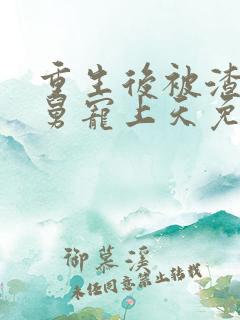 重生後被渣
舅寵上天免
御慕溪
未經同意禁止轉載